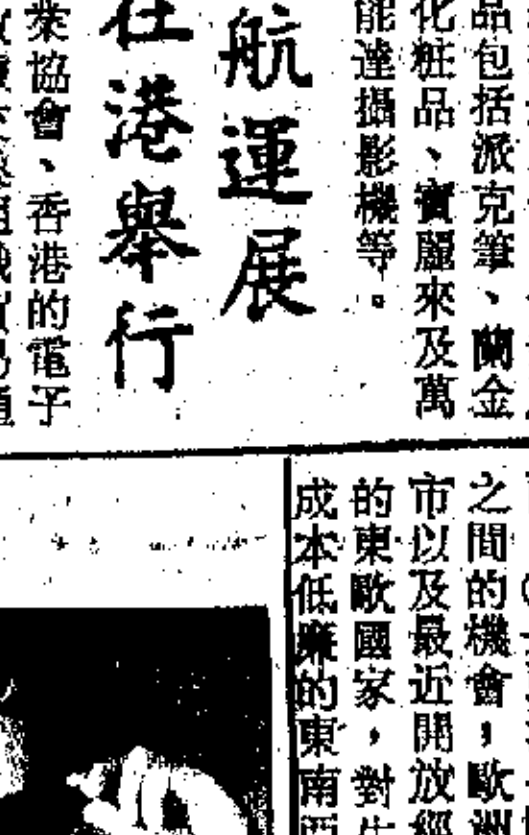 品包括派克筆、蘭金
化粧品、寶麗來及萬
能達攝影機等。
航運展
在港舉行
業協會、香港的電子
之間的機會，歐洲
市以及最近開放經
的東歐國家，對生
成本低廉的東南西